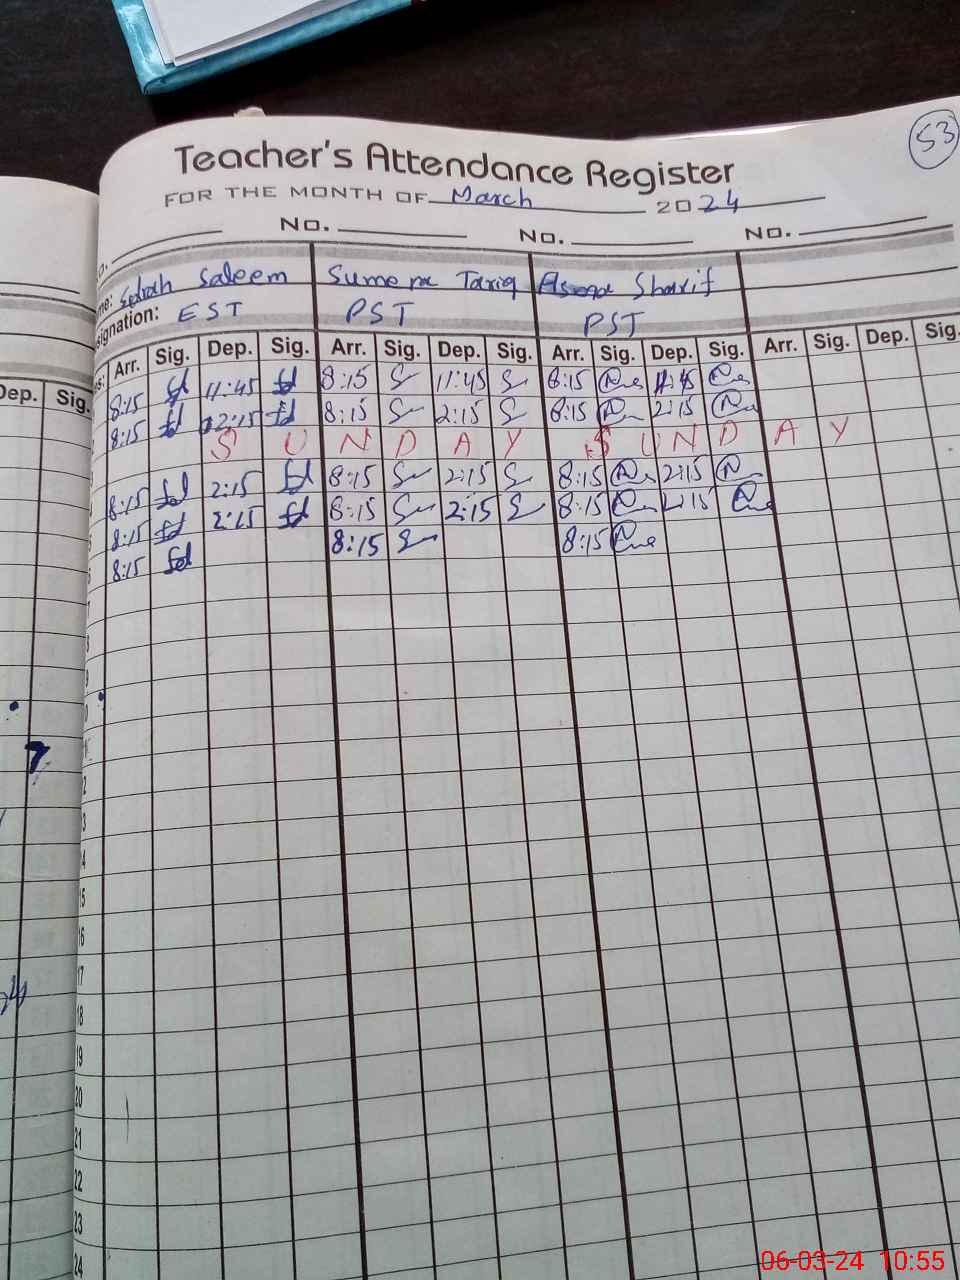 53
Teacher's Attendance Register
FOR THE MONTH OF March 2024
No. No. No.
me: Sidrah Saleem Sumera Tariq Asma Sharif
signation: EST PST PST
Arr. Sig. Dep. Sig. Arr. Sig. Dep. Sig. Arr. Sig. Dep. Sig. Arr. Sig. Dep. Sig.
Dep. Sig.
8:15 11:45 8:15 11:45 8:15 11:45
8:15 2:15 8:15 2:15 8:15 2:15
S U N D A Y S U N D A Y
8:15 2:15 8:15 2:15 8:15 2:15
8:15 2:15 8:15 2:15 8:15 2:15
8:15 8:15 8:15
7
15
16
17
18
19
20
21
22
23
24
06-03-24 10:55